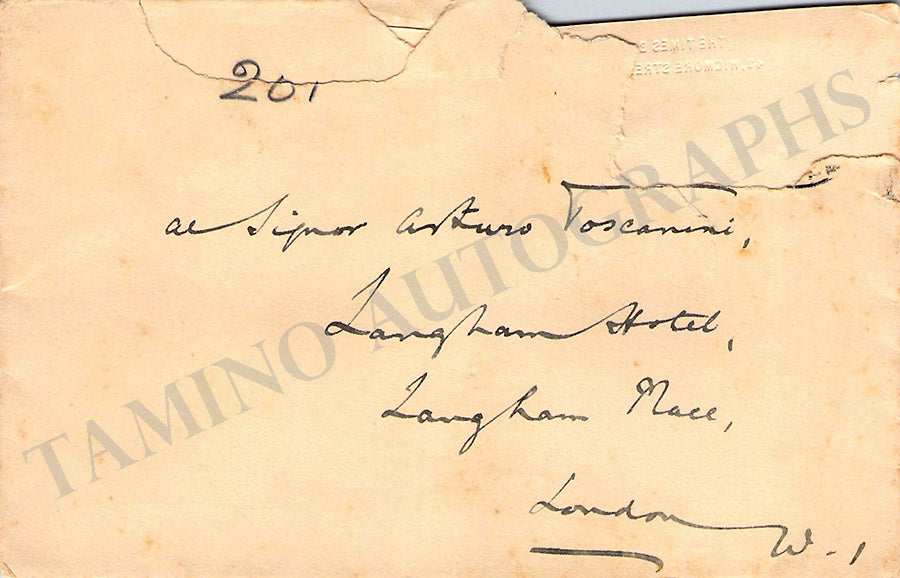 201
THE TIMES B
42, WIGMORE STRE
al Signor Arturo Toscanini,
Langham Hotel,
Langham Place,
London
W. 1
TAMINO AUTOGRAPHS